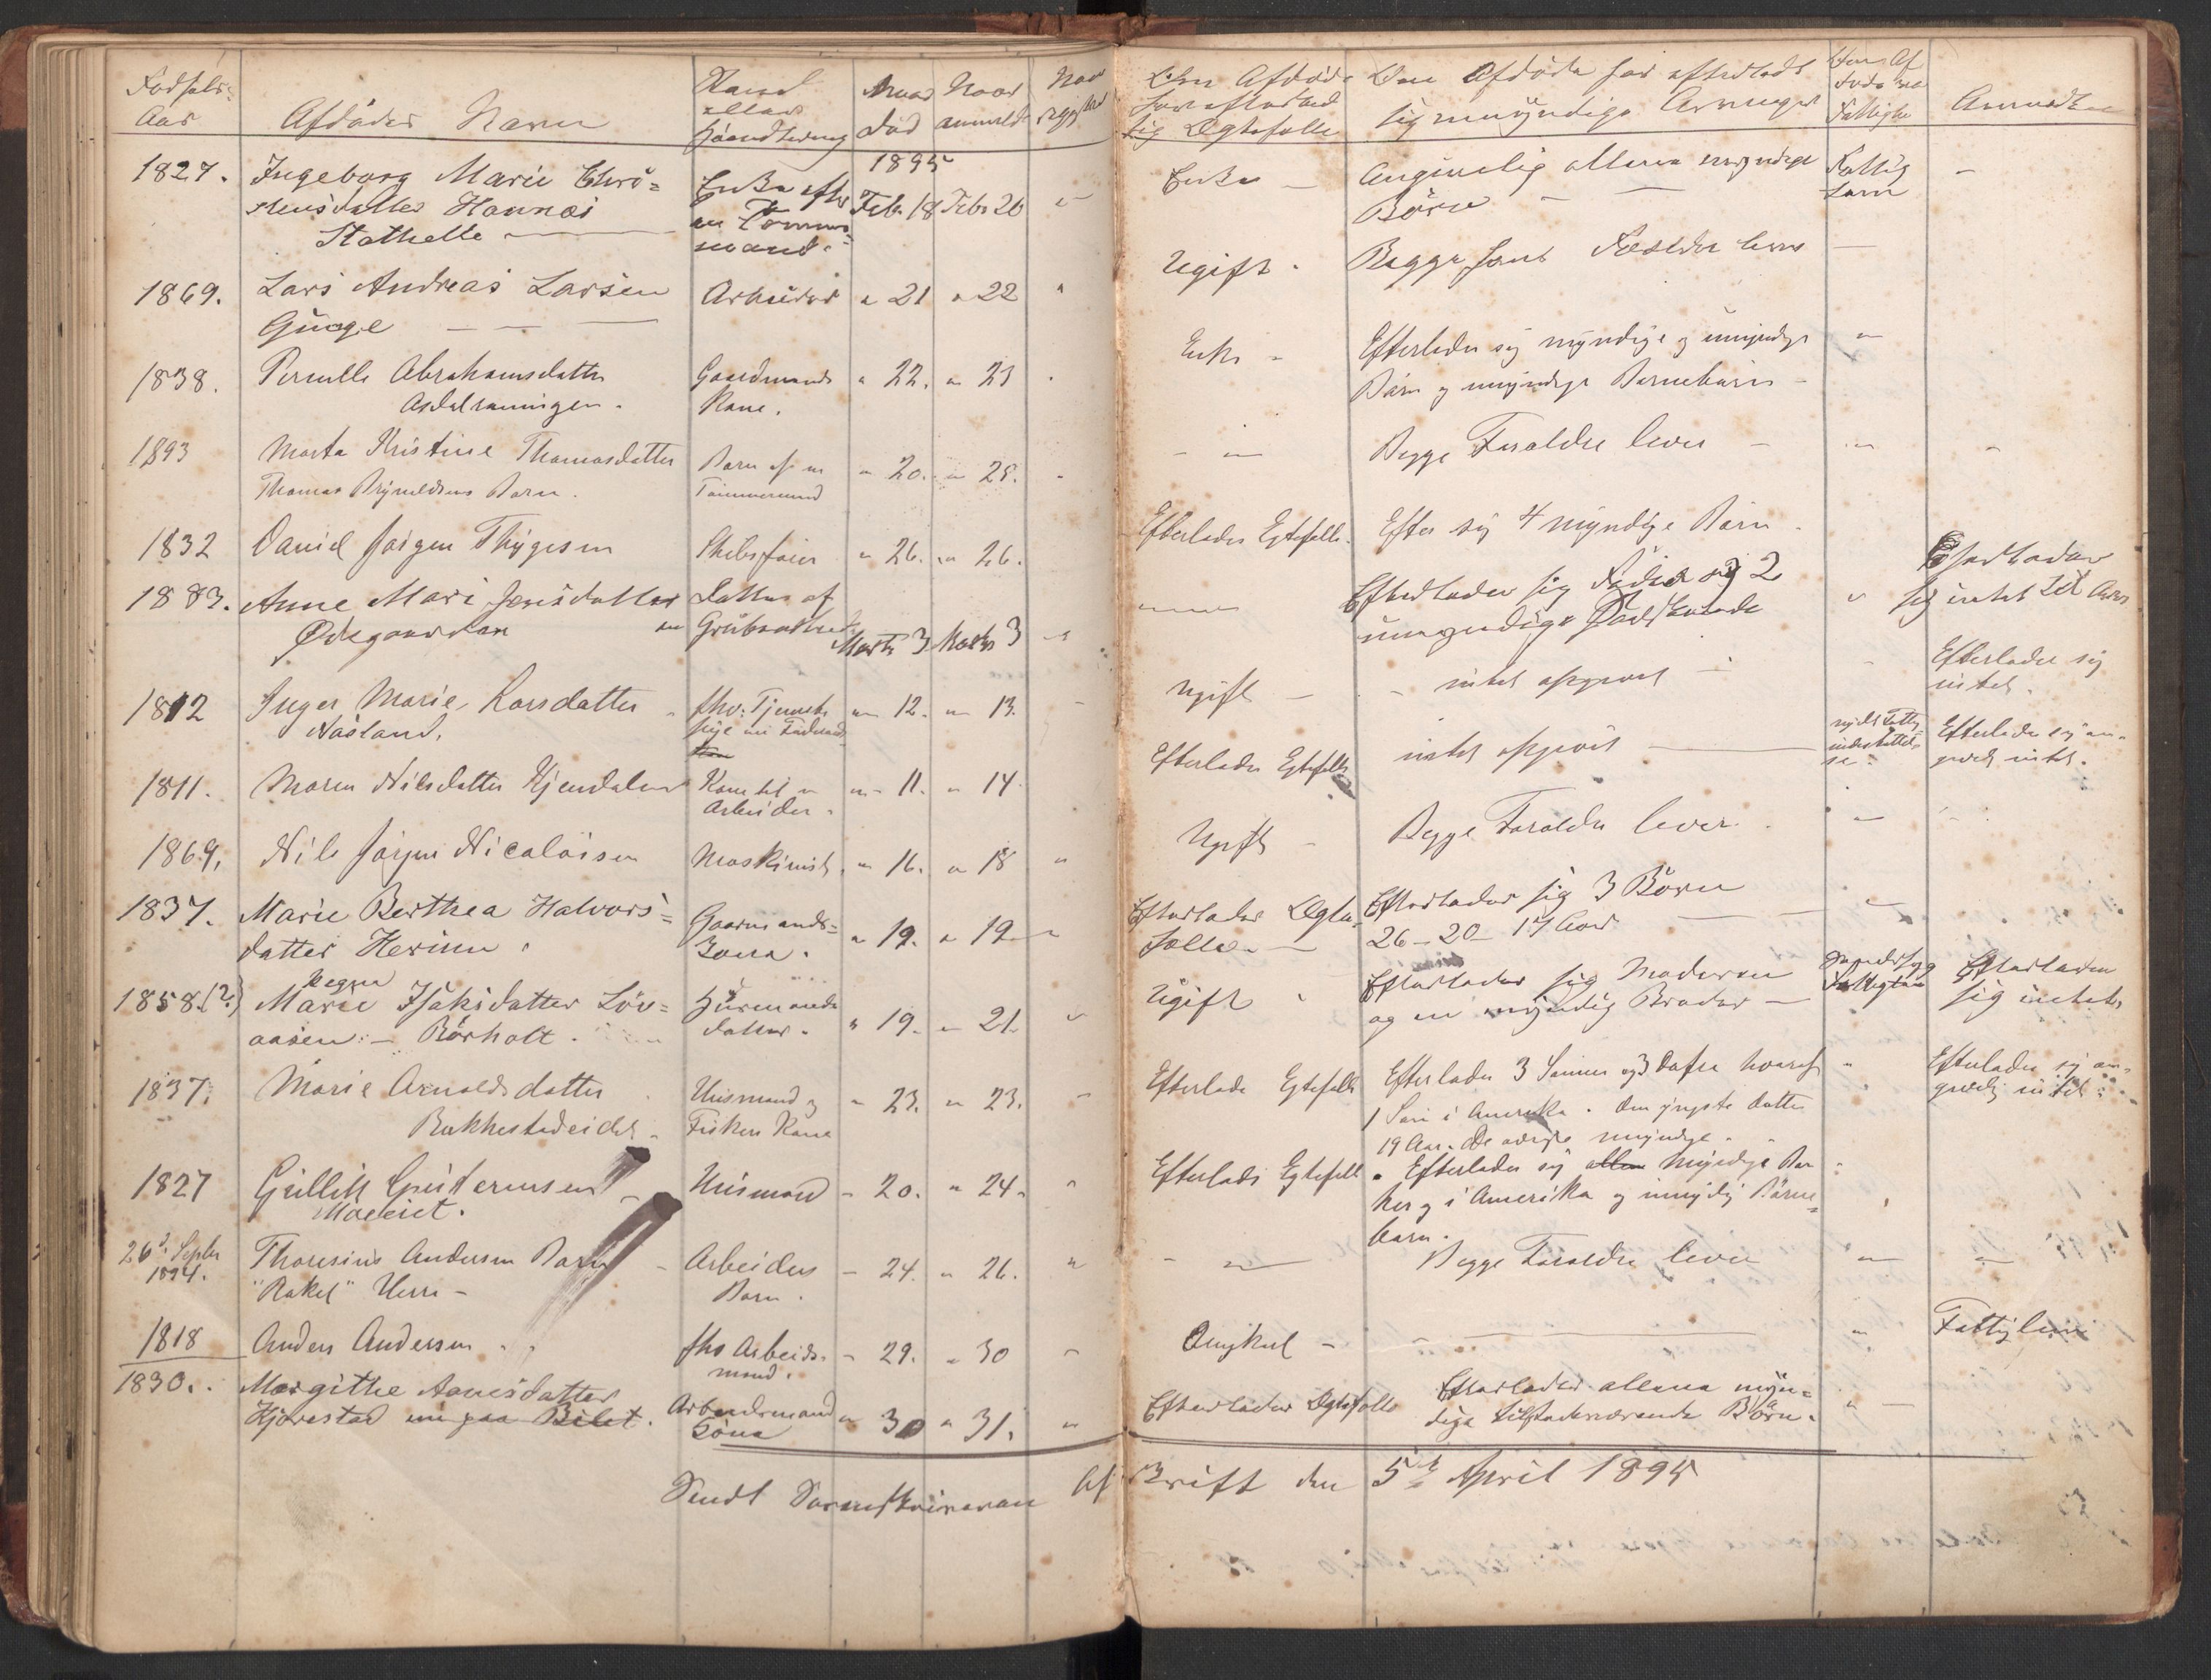 Fødsels-
Aar
Afdødes Navn
Stand
eller
Haandtering
Naar
død
Naar
anmeldt
Den Afdøde
har efterladt
sig Ægtefælle
Den Afdøde har efterladt
sig myndige Arvinger
1827. Ingeborg Marie Chri=
stensdatter Hannæs
Stathelle
Enke efter
en Tømmer=
mand.
1895
Febr. 18 Febr 20
Enke
Angivelig allene myndige
Børn
Fattig
lem
1869. Lars Andreas Larsen
Arbeider " 21 " 22 "
Ugift.
Begge hans Forældre lever
1838. Pernille Abrahamsdatter
Gaardmands
Kone.
" 22. " 23
Efterlader sig myndige og umyndige
Børn og umyndige Barnebørn
1893 Marta Kristine Thomasdatter
Thomas Brynildsens Barn.
Barn af en
Tømmermand
" 20. " 28.
Begge Foraldre lever
1832 Daniel Jørgen Thygesen
" 26. " 26.
Efterlader Egtefelle.
Efter sig 4 myndige Børn
1883. Anne Mari Jensdatter
Ødegaarden
Datter af
en
Marts 3 Marts 3
Efterlader sig Fader og 2
umyndige
Efterlader
sig intet
1812 Inger Marie Larsdatter
Aasland.
fhv. Tjeneste
pige
" 12. " 13.
ugift
intet opgivet
Efterlader sig
intet.
1811. Maren Nilsdatter Kjendalen
Kone til en
Arbeider.
" 11. " 14
Efterlader Egtefelle
intet opgivet
Efterlader sig an-
givelig intet.
1869. Nils Jørgen Nicolaisen
Maskinist. " 16. " 18 "
Ugift
Begge Foraldre lever.
1837. Marie Berthea Halvors=
datter Herum.
Gaarmands=
Kona.
" 19. " 19 "
Efterlader Ægte=
fælle.
Efterlader sig 3 Børn
26 – 20 – 17 Aar
1858(?) Marie Isaksdatter Løv=
aasen – Børholt.
Husmands
datter.
" 19. " 21. "
Ugift
Efterlader sig Moderen
og en myndig Broder
Efterlader
sig intet
1837. Marie Arnoldsdatter
Bakkestadeidet
Husmand og
Fiskers Kone
" 23. " 23.
Efterlade Egtefelle
Efterlader 3 Sønner og 3 Døtre hvoraf
1 Søn i Amerika. Den yngste datter
19 Aar. De øvrige myndige.
Efterlader sig an-
givelig intet.
1827 Gullik Gundersen
Husmand " 20. " 24. "
Efterlader Egtefelle.
Efterlader sig allene myndige Bør
her og i Amerika og umyndig Børne=
barn.
26de Septbr
1894.
Thoresius Andersen Barn
"Rakel" Herre –
Arbeiders
Barn.
– 24. " 26. "
Begge Foraldre lever
1818 Anders Andersen
fhv Arbeids-
mand.
– 29. " 30 "
Enkel –
Fattiglem
1830. Margithe Aanesdatter
Kjørestad nu paa Belet.
Arbeidsmand
Kona
" 30 " 31. "
Efterlader Ægtefelle
Efterlader allene myn=
dige tilstedeværende Børn.
Sendt Sorenskriveren Afskrift den 5te April 1895